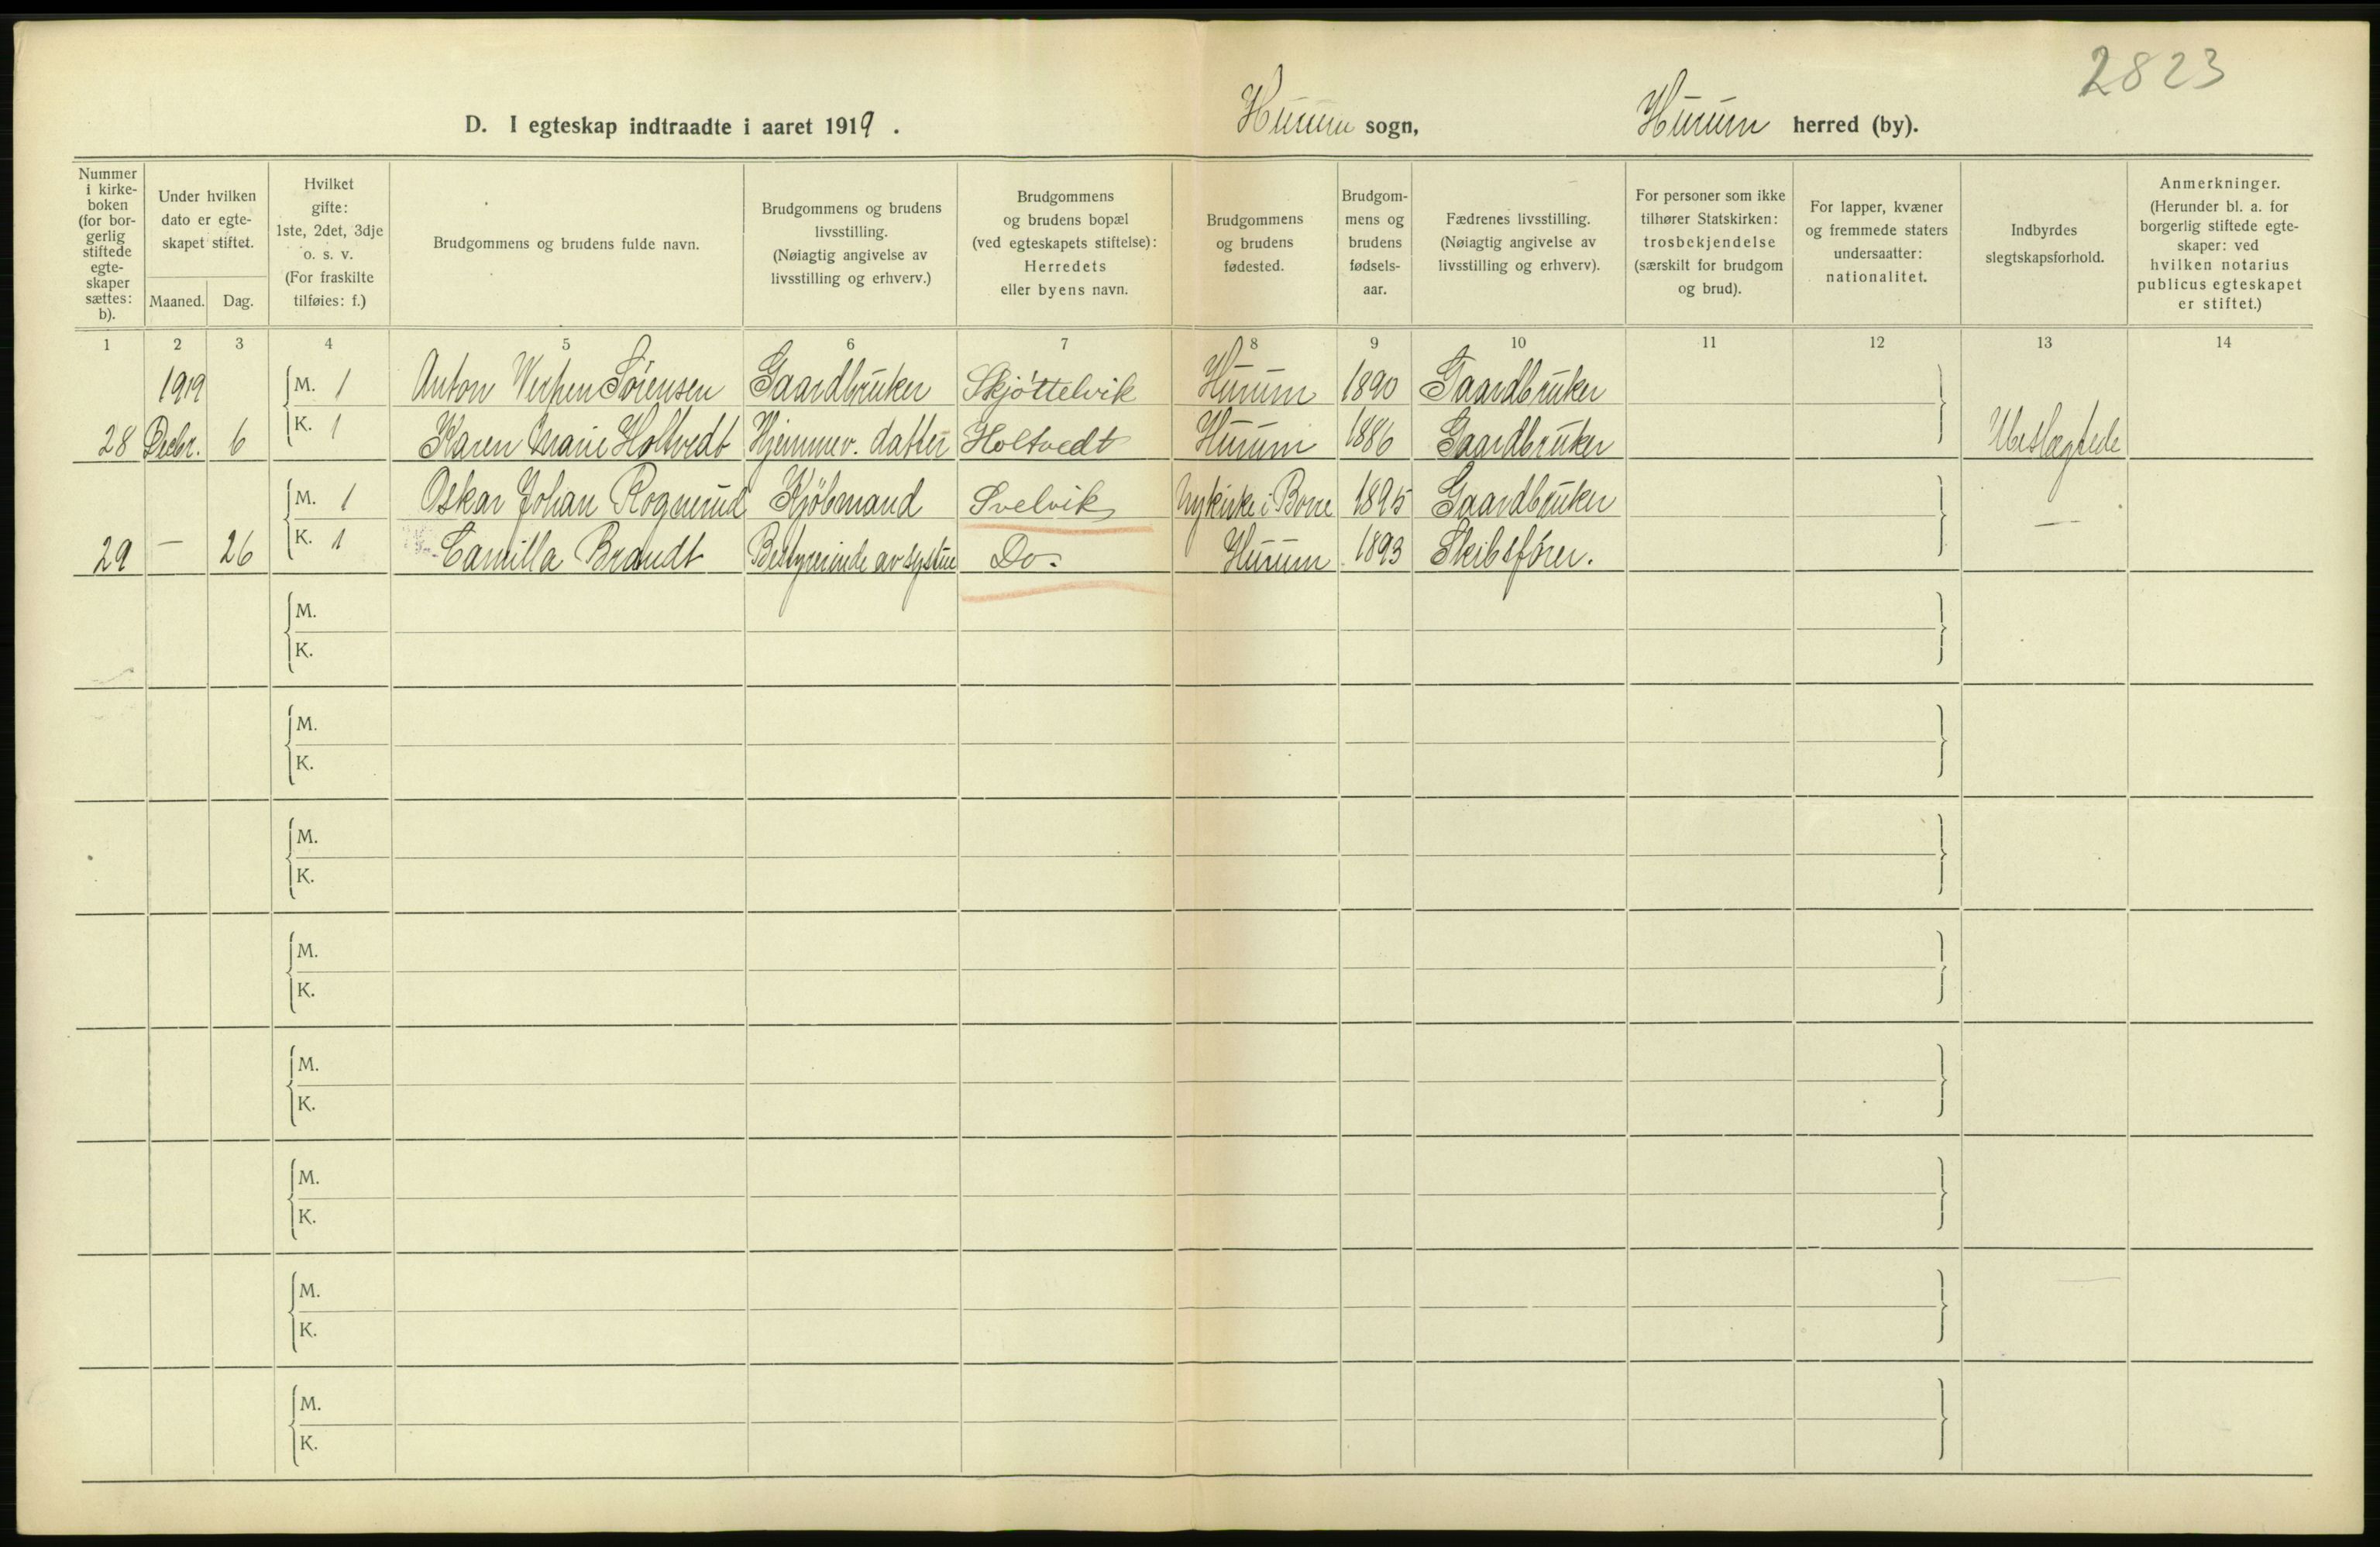 2823
D. I egteskap indtraadte i aaret 1919. Hurum sogn, Hurum herred (by).
Nummer i kirke-boken (for bor-gerlig stiftede egte-skaper sættes: b).
Under hvilken dato er egte-skapet stiftet.
Maaned. Dag.
Hvilket gifte: 1ste, 2det, 3dje o. s. v. (For fraskilte tilføies: f.)
Brudgommens og brudens fulde navn.
Brudgommens og brudens livsstilling. (Nøiagtig angivelse av livsstilling og erhverv.)
Brudgommens og brudens bopæl (ved egteskapets stiftelse): Herredets eller byens navn.
Brudgommens og brudens fødested.
Brudgom-mens og brudens fødsels-aar.
Fædrenes livsstilling. (Nøiagtig angivelse av livsstilling og erhverv).
For personer som ikke tilhører Statskirken: trosbekjendelse (særskilt for brudgom og brud).
For lapper, kvæner og fremmede staters undersaatter: nationalitet.
Indbyrdes slegtskapsforhold.
Anmerkninger. (Herunder bl. a. for borgerlig stiftede egte-skaper: ved hvilken notarius publicus egteskapet er stiftet.)
1 2 3 4 5 6 7 8 9 10 11 12 13 14
1919 M. 1 Anton Sørensen Gaardbruker Skjøttelvik Hurum 1890 Gaardbruker
28 Decbr. 6 K. 1 Karen Marie Holtvedt Hjemmev. datter Holtvedt Hurum 1886 Gaardbruker Ubeslægtede
M. 1 Oskar Johan Rognerud Kjøbmand Svelvik Nykirke i Borre 1895 Gaardbruker
29 — 26 K. 1 Camilla Brandt Bestyrerinde av systue Do. Hurum 1893 Skibsfører. —
M.
K.
M.
K.
M.
K.
M.
K.
M.
K.
M.
K.
M.
K.
M.
K.